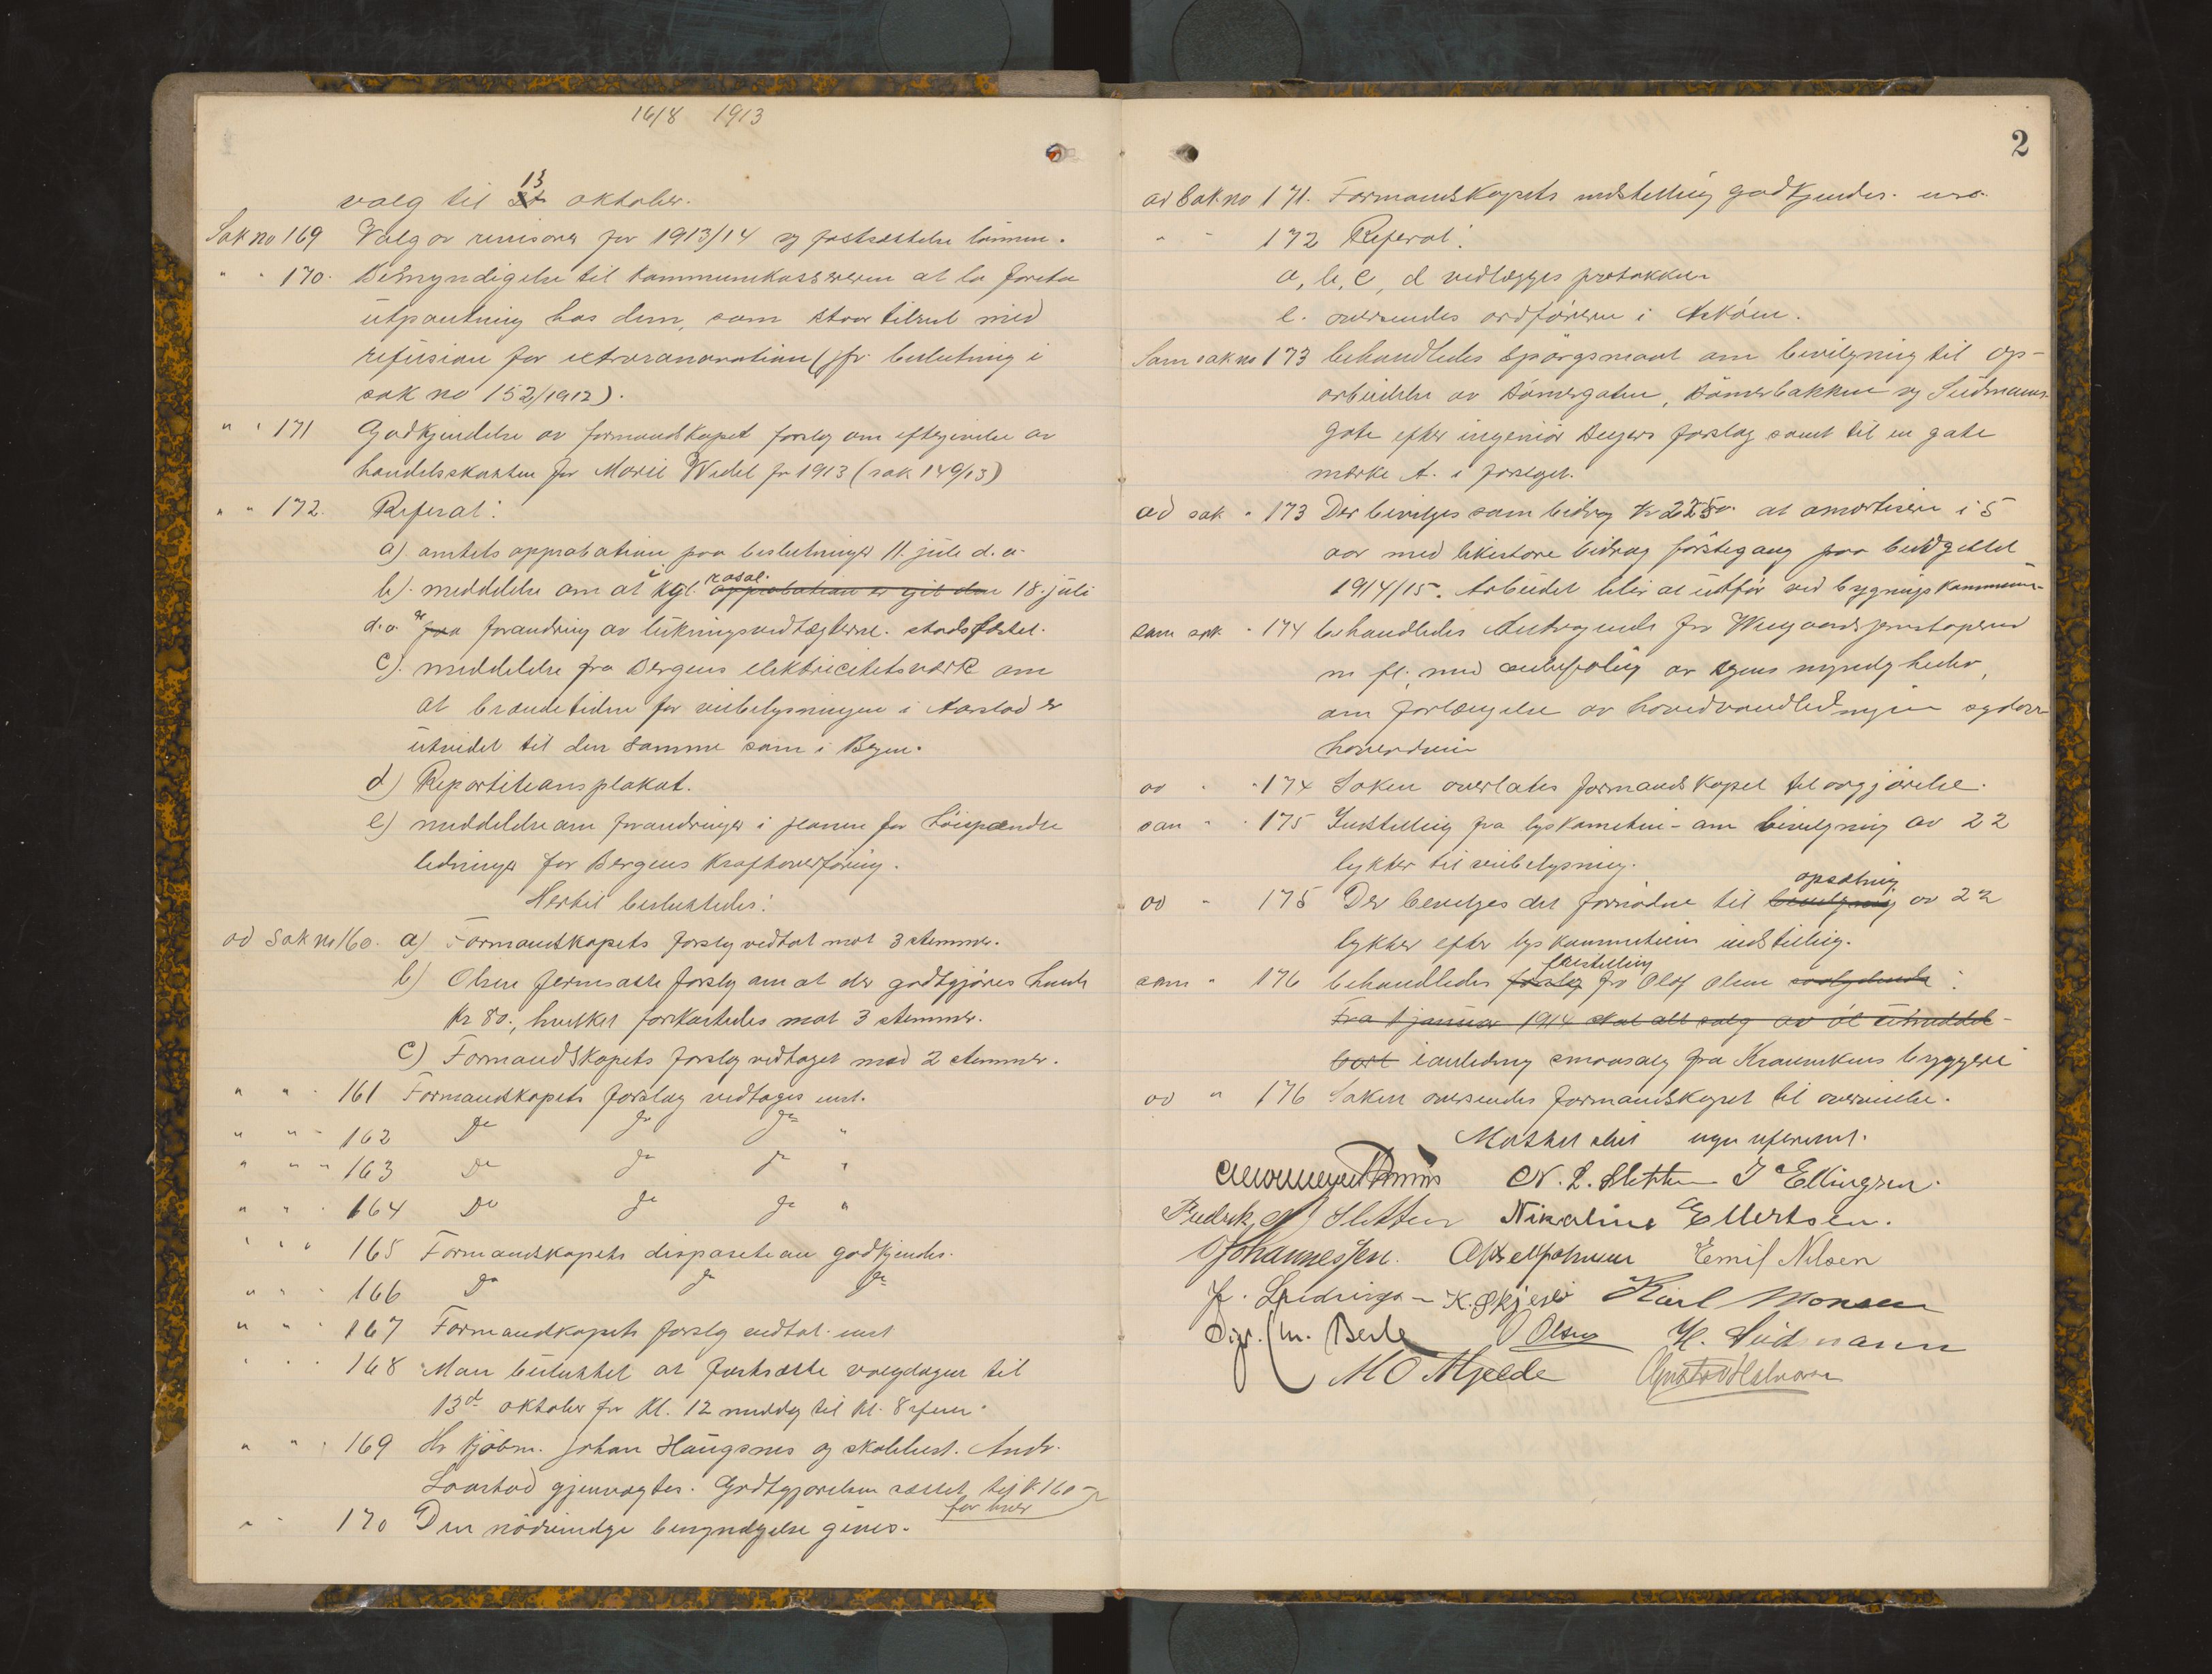 16/8 1913
valg til 13 oktober.
Sak no 169 Valg av revisorer for 1913/14 og fastsættelse lønnen.
" " 170. Bemyndigelse til kommunekassereren at la foreta
utpantning hos dem, som staar tilrest med
refusion for extrarenovation (jfr. beslutning i
sak no 152/1912).
" " 171 Godkjendelse av formandskapet forslag om eftergivelse av
handelsskatten for Marie Wedel for 1913 (sak 149/13)
" " 172. Referat:
a) amtets approbation paa beslutninger 11. juli d.a.
b). meddelelse om at kgl. resol. approbation er git den 18. juli
d.a. forandring av likningsvedtægterne. stadsfæstet.
c). meddelelse fra Bergens elektricitetsverk om
at brændetiden for veibelysningen i Aarstad er
utvidet til den samme som i Bergen.
d) Repartitionsplakat.
e) meddelelse om forandringer i planen for høispændte
ledninger for Bergens Kraftoverføring.
Hertil besluttedes:
ad Sak no 160. a) Formandskapets forslag vedtat mot 3 stemmer.
b) Olsen fremsatte forslag om at der godtgjøres Lunde
kr 80., hvilket forkastedes mot 3 stemmer.
c) Formandskapets forslag vedtaget mod 2 stemmer.
" " " 161 Formandskapets forslag vedtages enst.
" " " 162 Do Do Do "
" " " 163 Do Do Do "
" " " 164 Do Do Do "
" " " 165 Formandskapets disposition godkjendes.
" " " 166 Do Do Do
" " " 167 Formandskapets forslag vedtat enst
" " " 168 Man besluttet at fastsætte valgdagen til
13de oktober fra kl. 12 middag til kl. 8 efterm.
" " " 169 Hr kjøbm. Johan Haugsnes og skolebest. Andr.
Laastad gjenvalgtes. Godtgjørelsen sættes til kr 160
for hver
" " 170 Den nødvendige bemyndigelse gives.
2
ad Sak no 171. Formandskapets indstilling godkjendes. ens.
" " 172 Referat:
a, b, c, d vedlægges protokollen
e. oversendes ordføreren i Askøen.
Som sak no 173 behandledes spørgsmaal om bevilgning til op-
arbeidelse av Dømergaten, Dømerbakken og Sudmanns
gate efter ingeniør Beyers forslag samt til en gate
mærke A. i forslaget.
ad sak " 173 Der bevilges som bidrag kr 2250. at amortisere i 5
aar med likestore bidrag førstegang paa budgettet
1914/15. Arbeidet blir at utføre ved bygningskommission-
som sak " 174 behandledes Andragende fra
m fl. med anbefaling av myndigheder,
om forlængelse av hovedvandledningen
ad " " 174 Saken overlates formandskapet til avgjørelse.
som " " 175 Indstilling fra lyskomiteen om bevilgning av 22
lykter til veibelysning.
ad " 175 Der bevilges det fornødne til bevilgning opsætning av 22
lykter efter lyskommissionens indstilling.
som " 176 behandledes forslag forestilling fra Olaf Olsen saalydende:
Fra 1 januar 1914 skal alt salg av øl
bort i anledning smaasalg fra Kraunikens bryggeri
ad " 176 Saken oversendes formandskapet til overveielse.
Møtet slut
N. L. Sletten J Ellingsen.
Fredrik N Sletten Nikoline Ellertsen.
Johannessen. Emil Nilsen
K. Skjeseth Karl Monsen
Olsen H. Sudmann
M O Mjelde Gustav Halvorsen